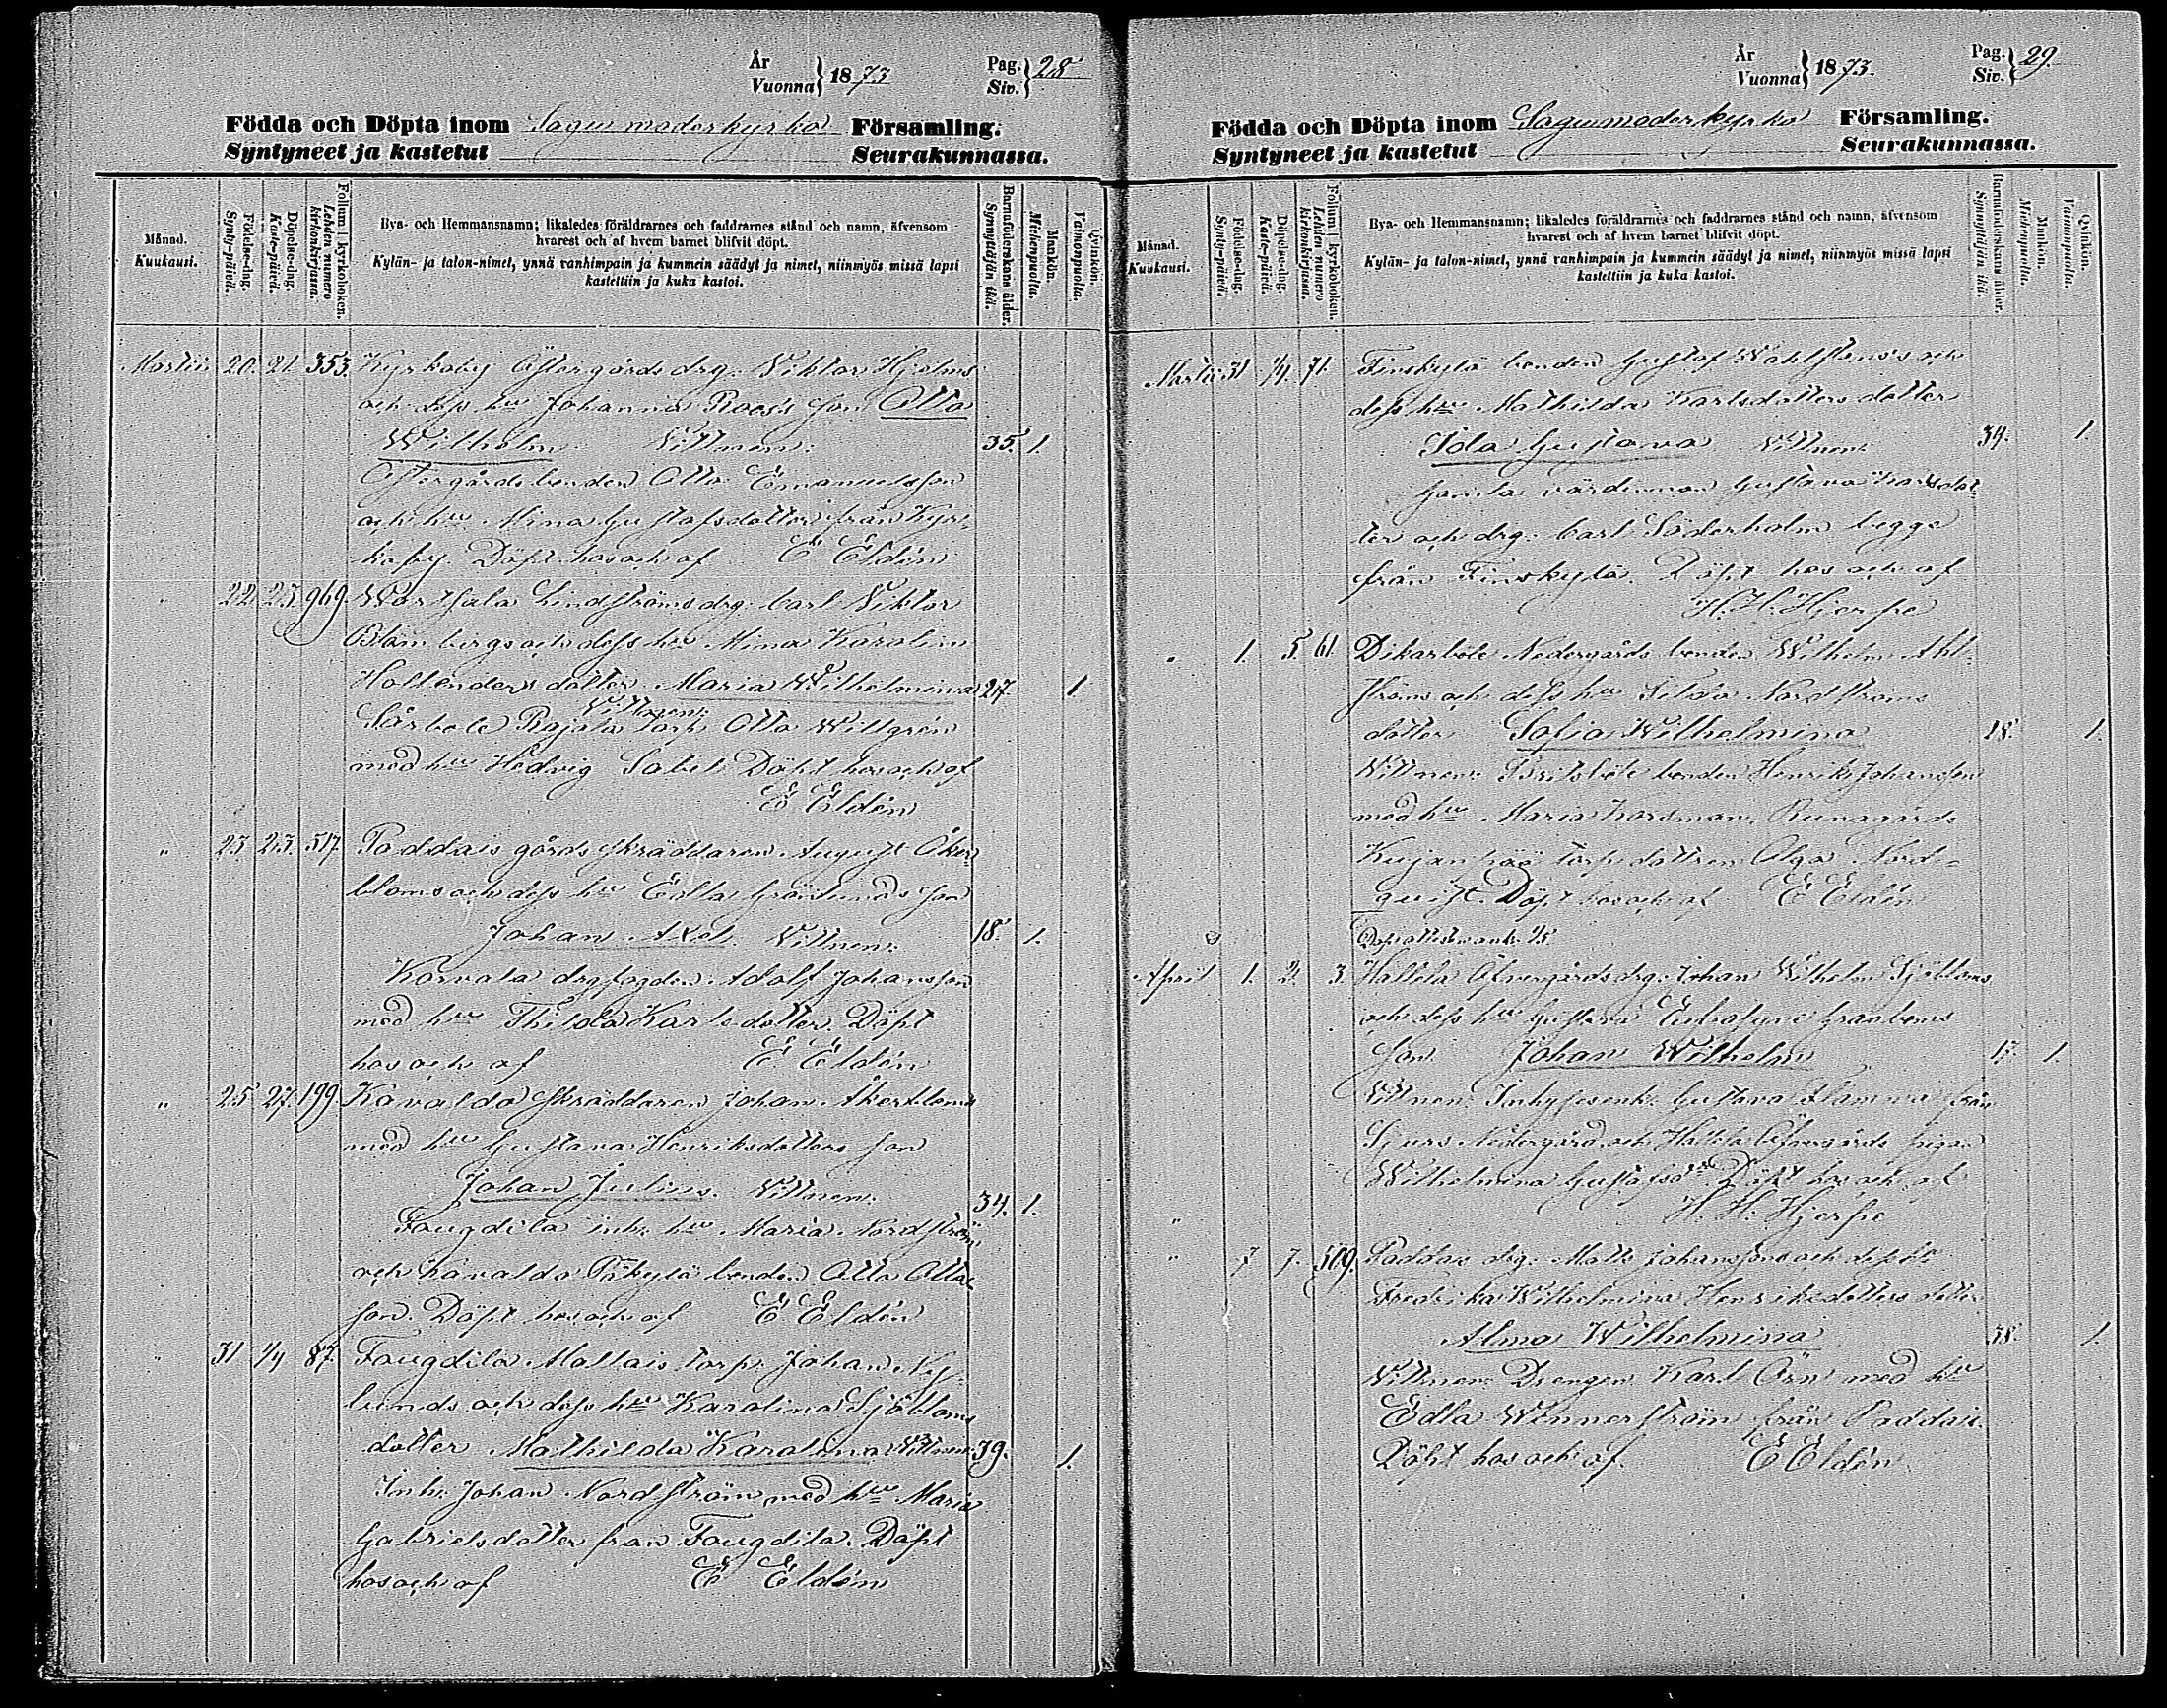 År
Vuonna } 1873
Pag.
Siv. } 28
Födda och Döpta inom Sagu moderkyrko Församling.
Syntyneet ja kastetut Seurakunnassa.
Månad.
Kuukausi.
Födelse-dag.
Synty-päivä.
Döpelse-dag.
Kaste-päivä.
Folium i kyrkoboken.
Lehden numero kirkonkirjassa.
Bya- och Hemmansnamn; likaledes föräldrarnes och faddrarnes stånd och namn, äfvensom
hvarest och af hvem barnet blifvit döpt.
Kylän- ja talon-nimet, ynnä vanhimpain ja kummein säädyt ja nimet, niinmyös missä lapsi
kastettiin ja kuka kastoi.
Barnaföderskans ålder.
Synnyttäjän ikä.
Mankön.
Miehenpuolia.
Qvinkön.
Vaimonpuolia.
Martii 20. 21. 353. Kyrkoby Östergårds drg. Viktor Hjelms
och dess hu Johanna Roos's son Otto
Wilhelm Vittnen: 35. 1.
Östergårds bonden Otto Emanuelsson
och hu Mina Gustafsdotter från Kyr-
koby. Döpt hos och af E Eldén
" 22. 23. 969. Lindströms drg. Carl Viktor
Blombergs och dess hu Mina Karolin
Hollenders dotter Maria Wilhelmina 27. 1
Vittnen:
Sårböle Rajala torp. Otto Willgrén
med hu Hedvig Döpt hos och af
E Eldén
" 23. 23. 517. Paddais gårds skräddaren August Åker-
bloms och dess hu Edla Grönlunds son
Johan Axel. Vittnen: 18. 1.
Korvala drgfogden Adolf Johansson
med hu Thilda Karlsdotter. Döpt
hos och af E. Eldén
" 25 27. 199. Kavalda skräddaren Johan Åkerbloms
med hu Gustava Henriksdotters son
Johan Julius. Vittnen: 34. 1.
Faugdila inh. hu Maria Nordström
och Kavalda bonden Otto Otto
son. Döpt hos och af E Eldén
" 31 1/4 87. Faugdila Mattais torp. Johan Ny-
lunds och dess hu Karolina Sjöbloms
dotter Mathilda Karolina Vittnen: 39. 1.
Inh. Johan Nordström med hu Maria
Gabrielsdotter från Faugdila. Döpt
hos och af E Eldén
År
Vuonna } 1873.
Pag.
Siv. } 29.
Födda och Döpta inom Sagu moderkyrko Församling.
Syntyneet ja kastetut Seurakunnassa.
Månad.
Kuukausi.
Födelse-dag.
Synty-päivä.
Döpelse-dag.
Kaste-päivä.
Folium i kyrkoboken.
Lehden numero kirkonkirjassa.
Bya- och Hemmansnamn; likaledes föräldrarnes och faddrarnes stånd och namn, äfvensom
hvarest och af hvem barnet blifvit döpt.
Kylän- ja talon-nimet, ynnä vanhimpain ja kummein säädyt ja nimet, niinmyös missä lapsi
kastettiin ja kuka kastoi.
Barnaföderskans ålder.
Synnyttäjän ikä.
Mankön.
Miehenpuolia.
Qvinkön.
Vaimonpuolia.
Martii 31 1/4. 71. Finskylä bonden Gustaf Wahlstens's och
dess hu Mathilda Karlsdotters dotter
Ida Gustava Vittnen: 34. 1.
Gamla värdinnan Gustava Karlsdot
ter och drg: Carl Söderholm begge
från Finskylä. Döpt hos och af
H. H. Hjerpe
" 1. 5. 61. Dikarböle Nedergårds bonden Wilhelm Ahl-
ströms och dess hu Nordströms
dotter Sofia Wilhelmina 18. 1.
Vittnen: bonden Henrik Johansson
med hu Maria
torp. dottren Olga Nord-
quist. Döpt hos och af E Eldén
April 1. 2. 3. Hallela Öfvergårds drg: Johan Wilhelm Sjöbloms
och dess hu Gustava
son Johan Wilhelm 1.
Vittnen: Gustava från
Nedergård och Hallela Öfvergårds pigan
Wilhelmina Gustafsdr Döpt hos och af
H. H. Hjerpe
" 7 7. 509. Paddais drg: Matts Johanssons och dess hu
Fredrika Wilhelmina Henriksdotters dotter
Alma Wilhelmina 38. 1.
Vittnen: Drengen Karl Örn med hu
Edla Wennerström från Paddais.
Döpt hos och af. E Eldén